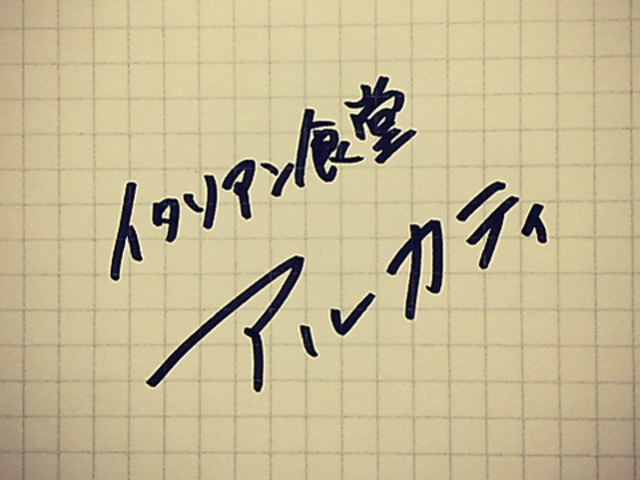 イタリアン食堂
アルカティ